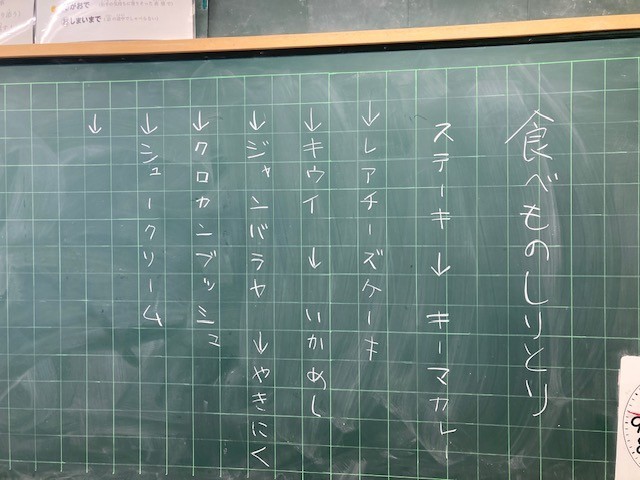 食べものしりとり
ステーキ ↓ キーマカレー
↓レアチーズケーキ
↓キウイ ↓ いかめし
↓ジャンバラヤ ↓やきにく
↓クロカンブッシュ
↓シュークリーム
↓
おしまいまで